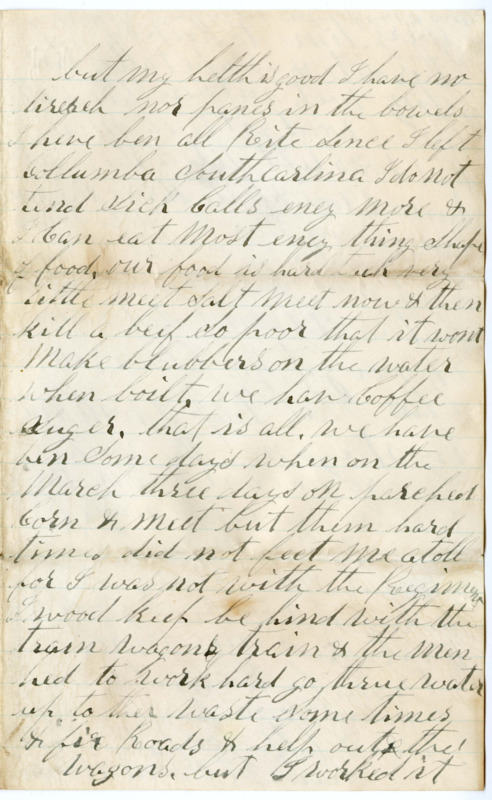 but my helth is good I have no
nor panes in the bowels
I heve ben all Rite Sence I left
Collumba Southcarlina I do not
tend Sick Calls eney more &
I Can eat Most eney thing Shape
of food. our food is hard tack very
little meet Salt Meet now & then
kill a beef So poor that it wont
Make blubbers on the water
when boilt. we hav Coffee
Suger. that is all. we have
ben Some days when on the
March three days on parched
Corn & Meet but them hard
times did not feet Me atoll
for I was not with the Regiment
I wood keep be hind with the
train wagons train & the Men
hed to work hard go threw water
up to ther waste Some times
& fix Roads & help out the
wagons. but I worked it